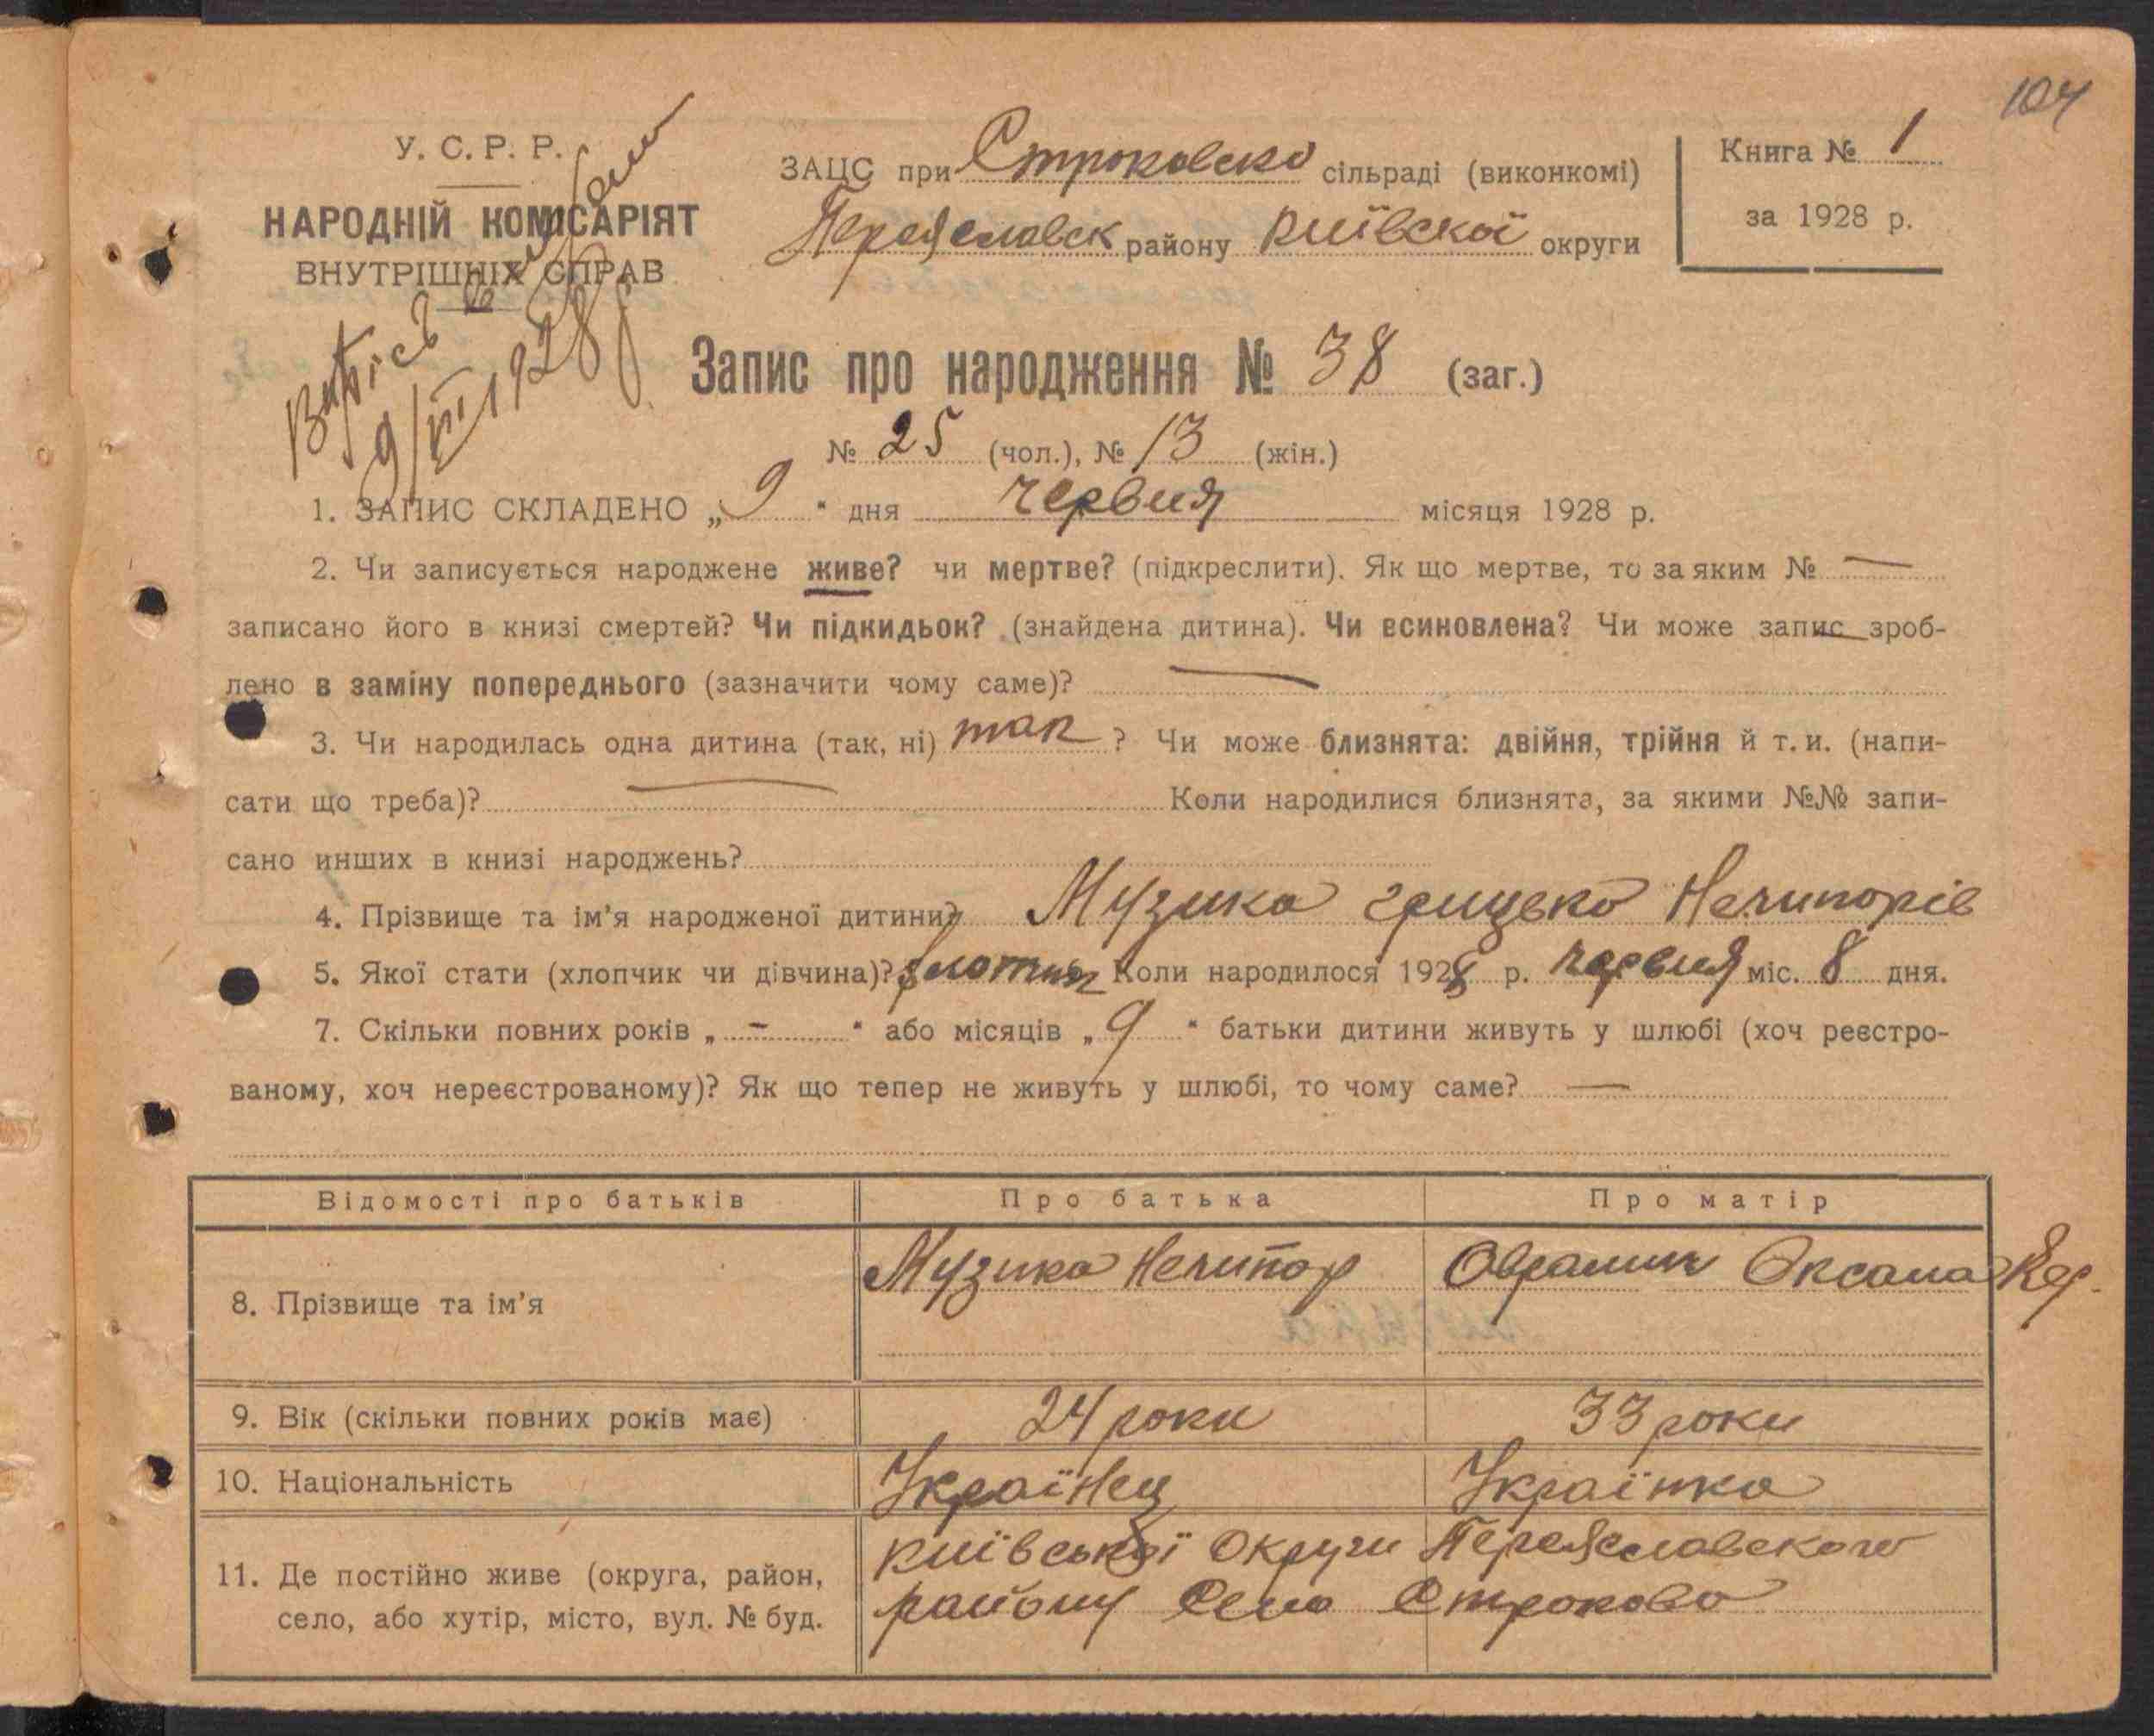 104
У. С. Р. Р.
НАРОДНІЙ КОМІСАРІЯТ
ВНУТРІШНІХ СПРАВ
9/VII 1928 р
ЗАЦС при Строковско сільраді (виконкомі)
Переяславск району Київскої округи
Книга № 1
за 1928 р.
Запис про народження № 38 (заг.)
№ 25 (чол.), № 13 (жін.)
1. ЗАПИС СКЛАДЕНО „9“ дня червня місяця 1928 р.
2. Чи записується народжене живе? чи мертве? (підкреслити). Як що мертве, то за яким № —
записано його в книзі смертей? Чи підкидьок? (знайдена дитина). Чи всиновлена? Чи може запис зроб-
лено в заміну попереднього (зазначити чому саме)? —
3. Чи народилась одна дитина (так, ні) так ? Чи може близнята: двійня, трійня й т. и. (напи-
сати що треба)? — Коли народилися близнята, за якими №№ запи-
сано инших в книзі народжень?
4. Прізвище та ім'я народженої дитини? Музика Грицько Нечипорів
5. Якої стати (хлопчик чи дівчина)? Коли народилося 1928 р. червня міс. 8 дня.
7. Скільки повних років „ – “ або місяців „ 9 “ батьки дитини живуть у шлюбі (хоч реєстро-
ваному, хоч нереєстрованому)? Як що тепер не живуть у шлюбі, то чому саме? —
Відомості про батьків Про батька Про матір
8. Прізвище та ім'я Музика Нечипор Оксана
9. Вік (скільки повних років має) 24 роки 33 роки
10. Національність Українец Українка
11. Де постійно живе (округа, район, село, або хутір, місто, вул. № буд. Київської Округи Переяславского
району Село Строково